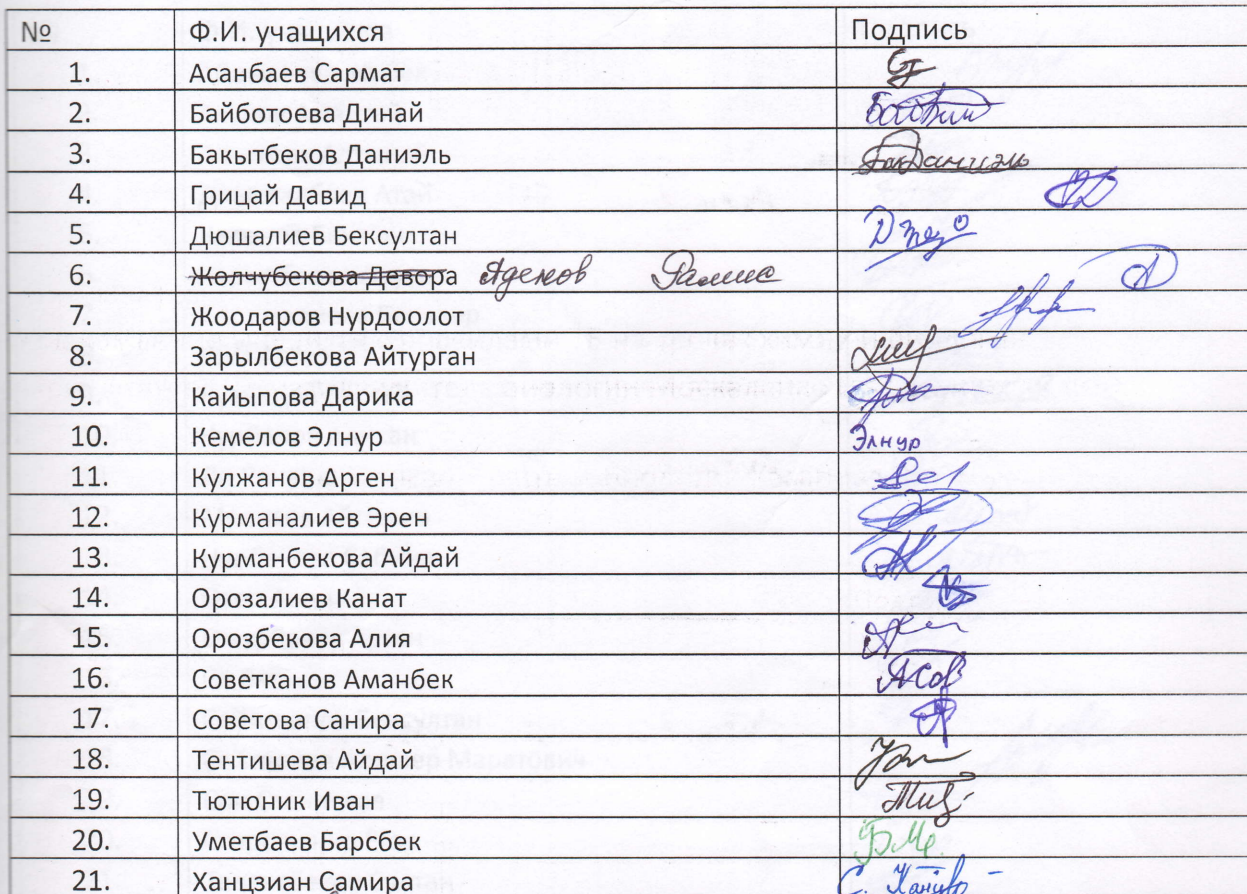 № Ф.И. учащихся Подпись
1. Асанбаев Сармат
2. Байботоева Динай
3. Бакытбеков Даниэль Даниэль
4. Грицай Давид
5. Дюшалиев Бексултан
6. Жолчубекова Девора Аденов
7. Жоодаров Нурдоолот
8. Зарылбекова Айтурган
9. Кайыпова Дарика
10. Кемелов Элнур Элнур
11. Кулжанов Арген
12. Курманалиев Эрен
13. Курманбекова Айдай
14. Орозалиев Канат
15. Орозбекова Алия
16. Советканов Аманбек
17. Советова Санира
18. Тентишева Айдай
19. Тютюник Иван
20. Уметбаев Барсбек
21. Ханцзиан Самира